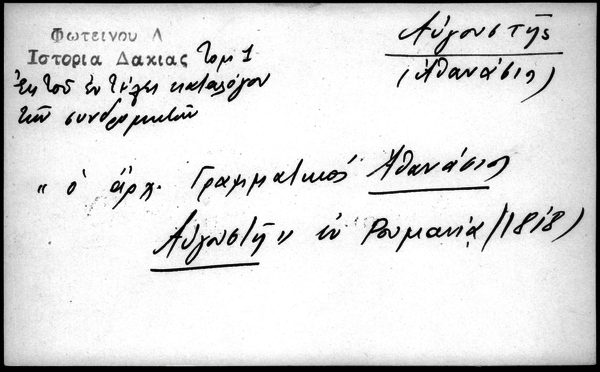 Φωτεινου Δ
Ιστορια Δακιας Τομ 1
Ἐκ τοῦ ἐν τέλει καταλόγου
τῶν συνδρομητῶν
Αὐγουστῆς
(Ἀθανάσιος)
" ὁ ἀρχ. Γραμματικός Ἀθανάσιος
Αὐγουστῆς" ἐν Ρουμανίᾳ (1818)